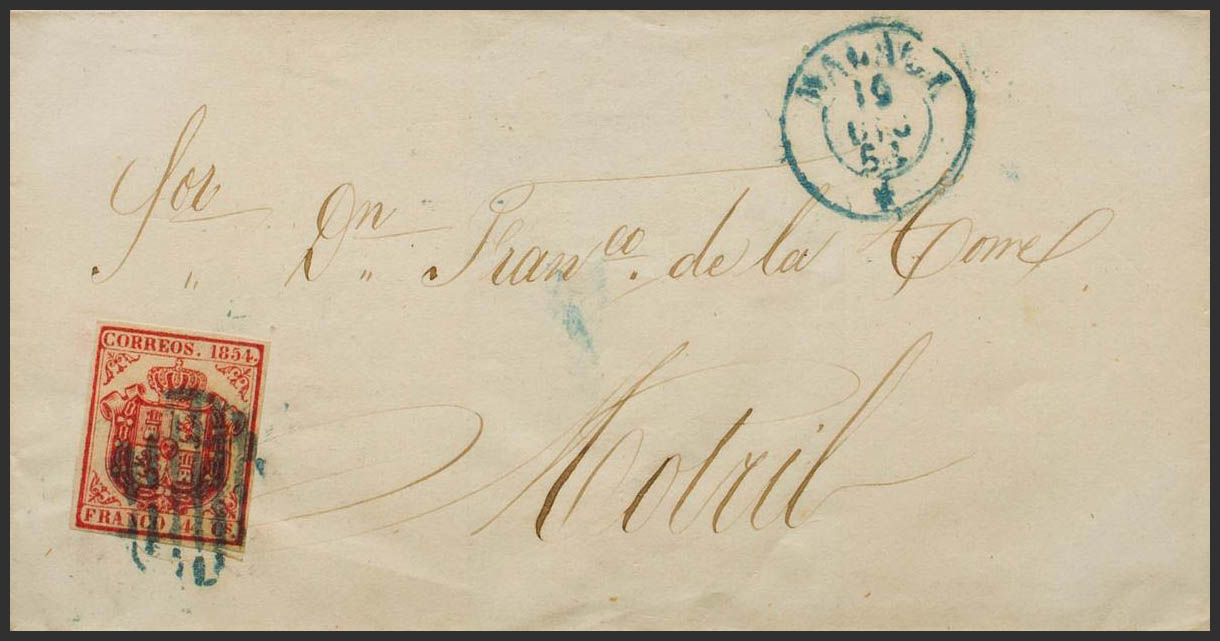 MALAGA
19
DIC
54
Sor Dn Franco. de la Torre
Motril
CORREOS. 1854.
FRANCO 4 Cs.